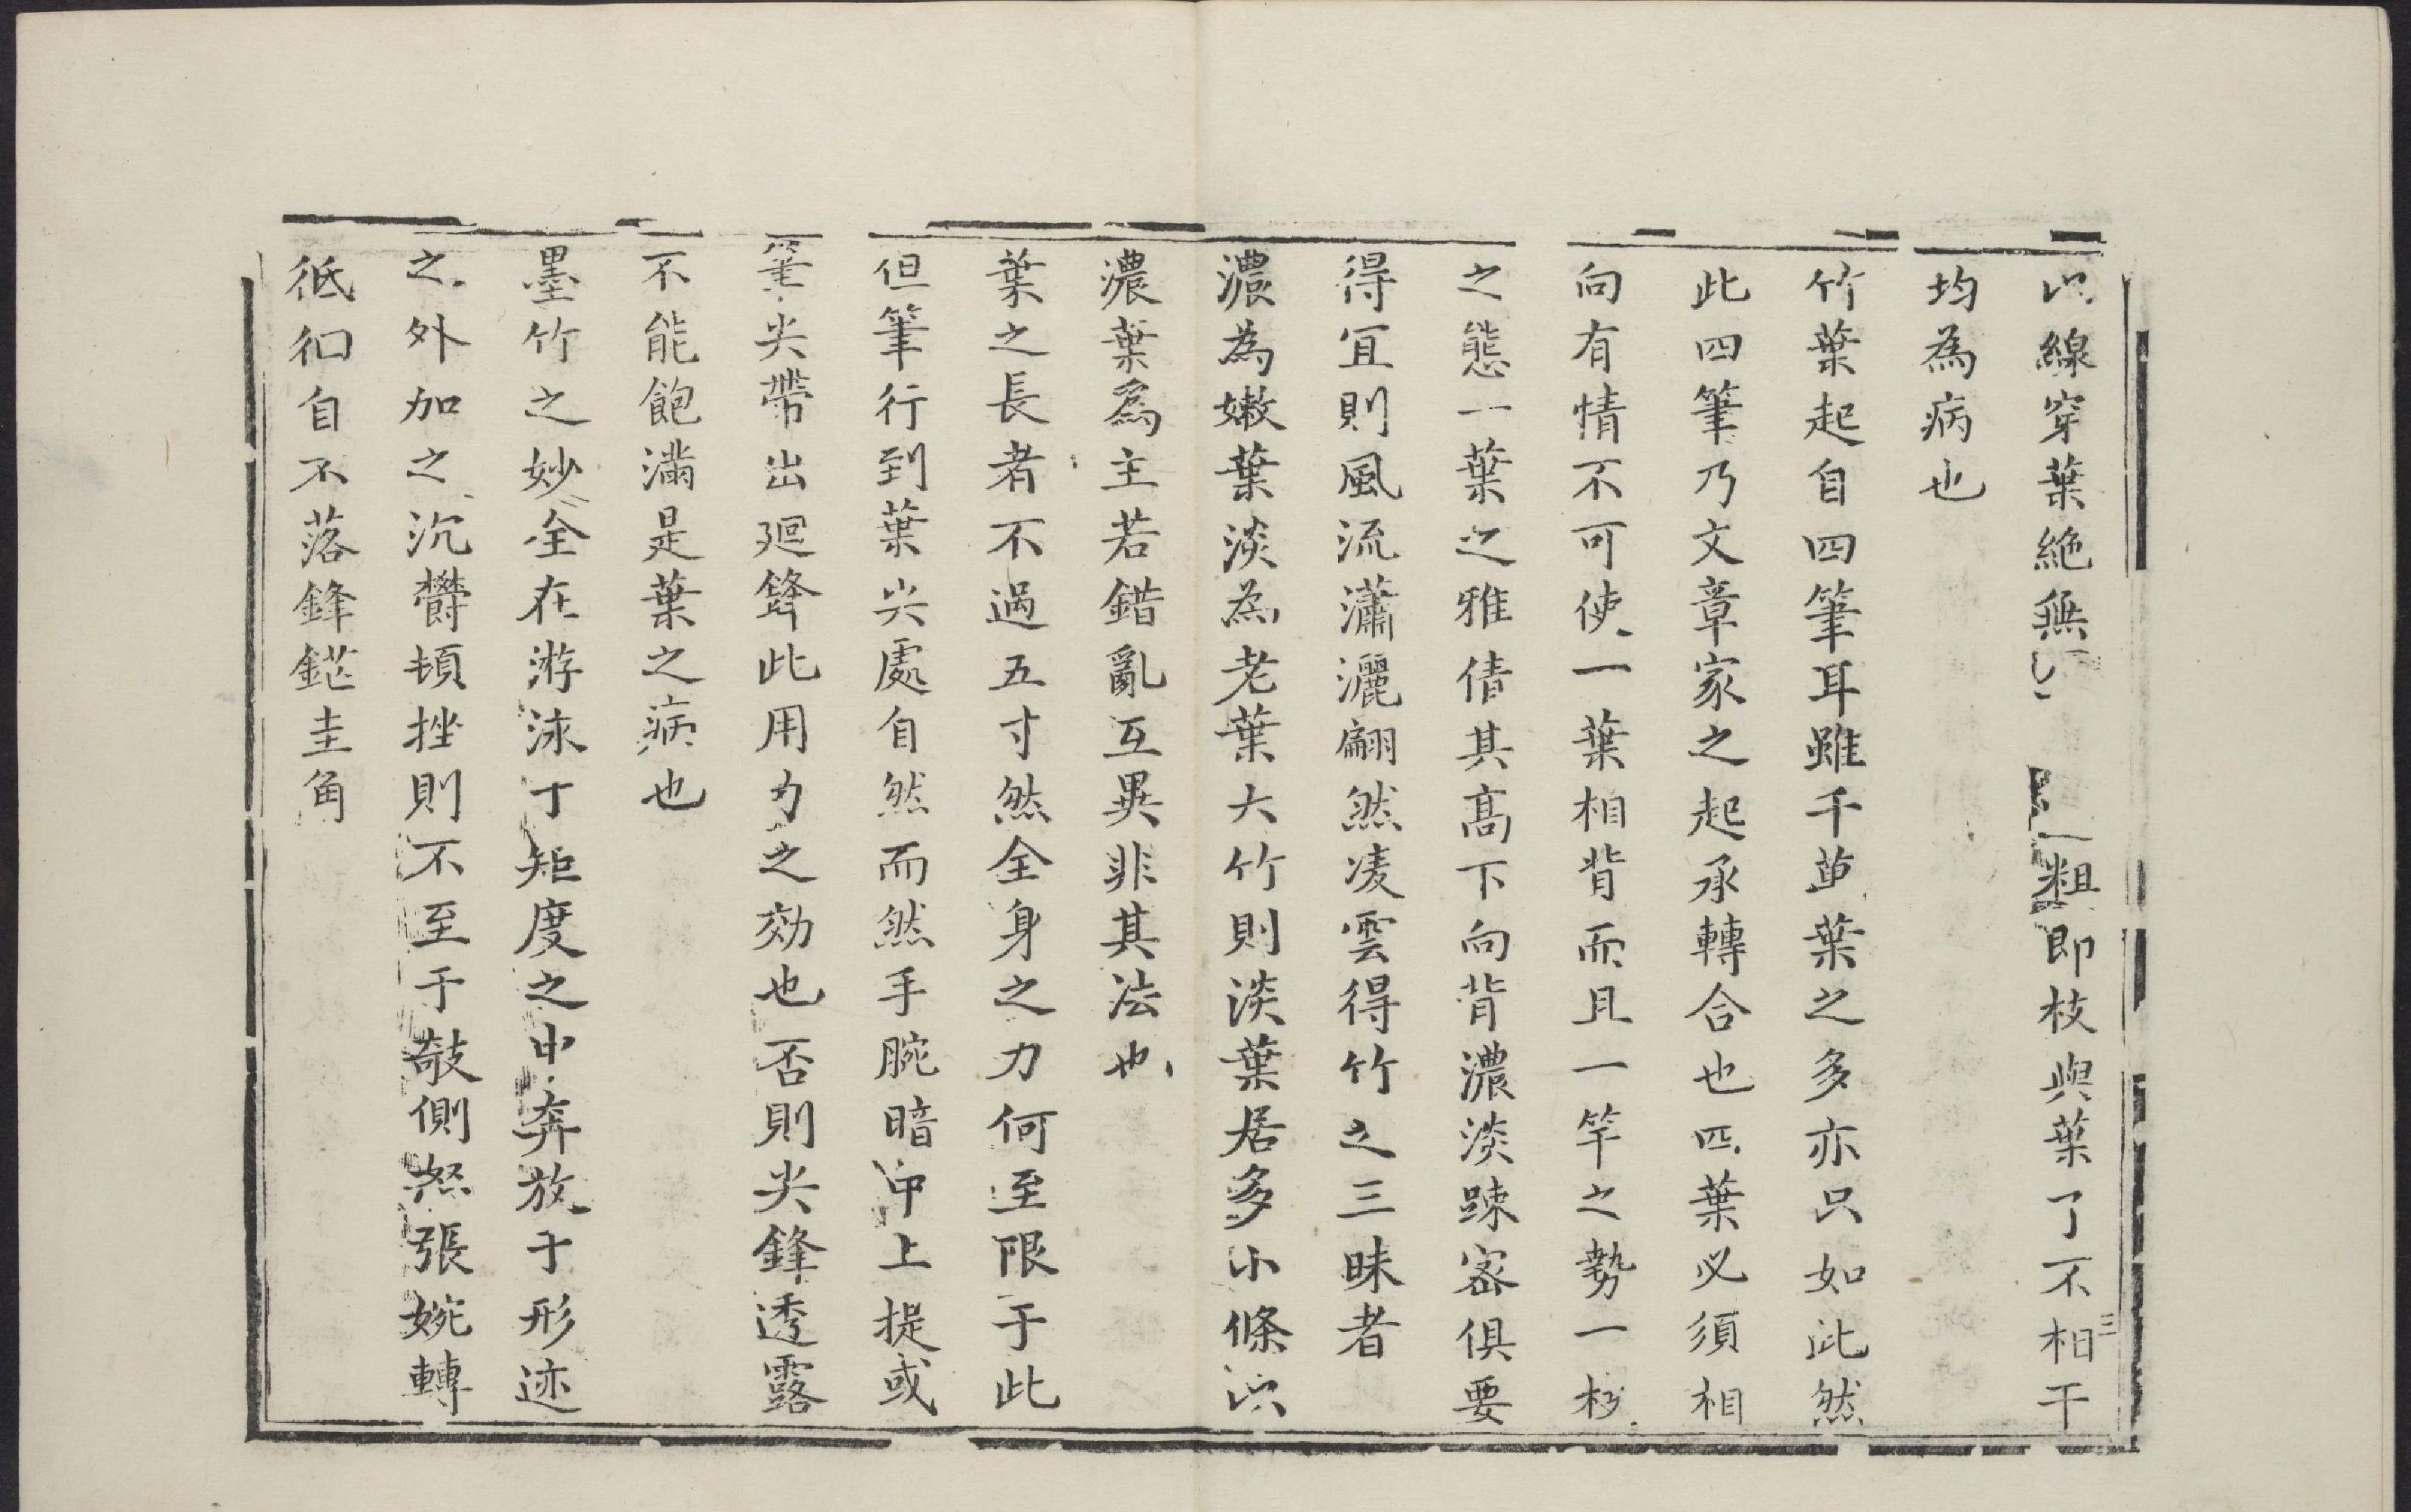 以線穿葉絶無 粗即枝與葉了不相干
三
均為病也
竹葉起自四筆耳雖千萆葉之多亦只如此然
此四筆乃文章家之起承轉合也四葉必須相
向有情不可使一葉相背而且一竿之勢一杉
之態一葉之雅倩其髙下向背濃淡踈宻俱要
得宜則風流瀟灑翩然凌雲得竹之三昧者
濃為嫩葉淡為老葉大竹則淡葉居多小條以
濃葉爲主若錯亂互異非其法也
葉之長者不過五寸然全身之力何至限于此
但筆行到葉尖處自然而然手腕暗中上提或
筆尖帶出廻鋒此用力之効也否則尖鋒透露
不能飽滿是葉之病也
墨竹之妙全在游泳于矩度之中奔放于形迹
之外加之沉欝頓挫則不至于敧側怒張婉轉
彽徊自不落鋒鋩圭角